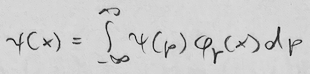 ψ(x) = ∫_{-∞}^{∞} ψ(p) φ_p(x) dp